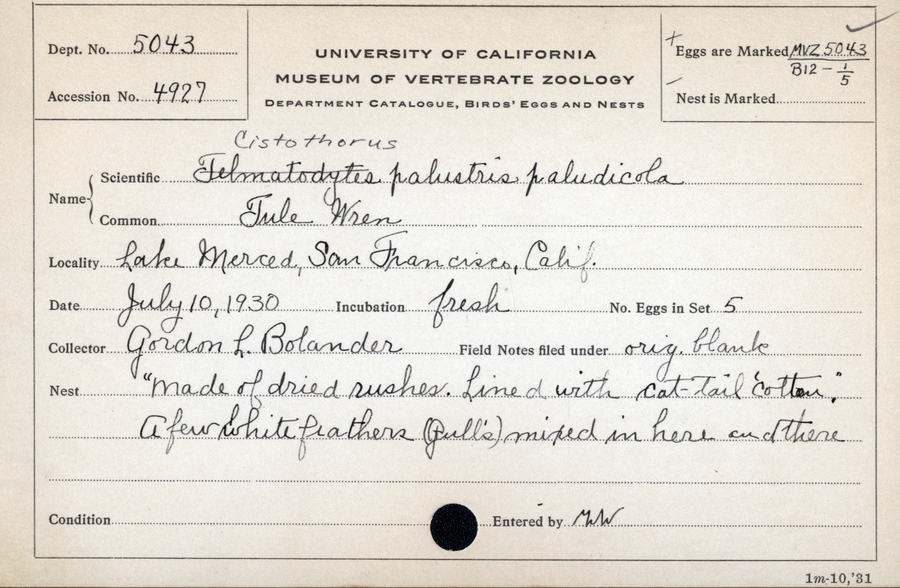 Dept. No. 5043
Accession No. 4927
UNIVERSITY OF CALIFORNIA
MUSEUM OF VERTEBRATE ZOOLOGY
DEPARTMENT CATALOGUE, BIRDS' EGGS AND NESTS
+ Eggs are Marked MVZ 5043
B12 - 1/5
- Nest is Marked
Cistothorus
Name { Scientific Telmatodytes palustris paludicola
Common Tule Wren
Locality Lake Merced, San Francisco, Calif.
Date July 10, 1930 Incubation fresh No. Eggs in Set 5
Collector Gordon L. Bolander Field Notes filed under orig. blank
Nest "Made of dried rushes. Lined with cat-tail "cotton".
A few white feathers (Gull's) mixed in here and there
Condition Entered by
1m-10,'31